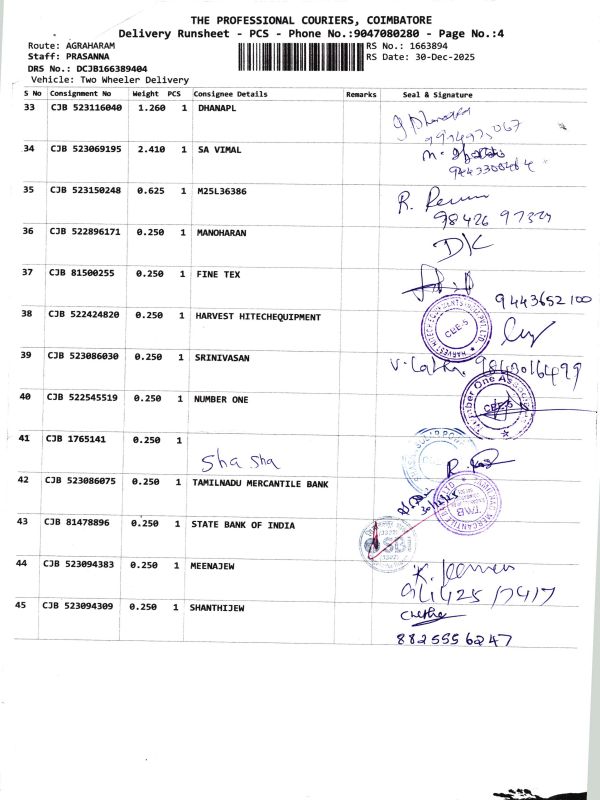 THE PROFESSIONAL COURIERS, COIMBATORE
Delivery Runsheet - PCS - Phone No.:9047080280 - Page No.:4
Route: AGRAHARAM RS No.: 1663894
Staff: PRASANNA RS Date: 30-Dec-2025
DRS No.: DCJB166389404
Vehicle: Two Wheeler Delivery
S No Consignment No Weight PCS Consignee Details Remarks Seal & Signature
33 CJB 523116040 1.260 1 DHANAPL
34 CJB 523069195 2.410 1 SA VIMAL
35 CJB 523150248 0.625 1 M25L36386
R.
98426 97327
36 CJB 522896171 0.250 1 MANOHARAN
DK
37 CJB 81500255 0.250 1 FINE TEX
9443652100
38 CJB 522424820 0.250 1 HARVEST HITECHEQUIPMENT
CBE-5
39 CJB 523086030 0.250 1 SRINIVASAN
40 CJB 522545519 0.250 1 NUMBER ONE
Number One
CBE-5
41 CJB 1765141 0.250 1
Sha sha
42 CJB 523086075 0.250 1 TAMILNADU MERCANTILE BANK
TMB
43 CJB 81478896 0.250 1 STATE BANK OF INDIA
SBI
44 CJB 523094383 0.250 1 MEENAJEW
45 CJB 523094309 0.250 1 SHANTHIJEW
8825556247